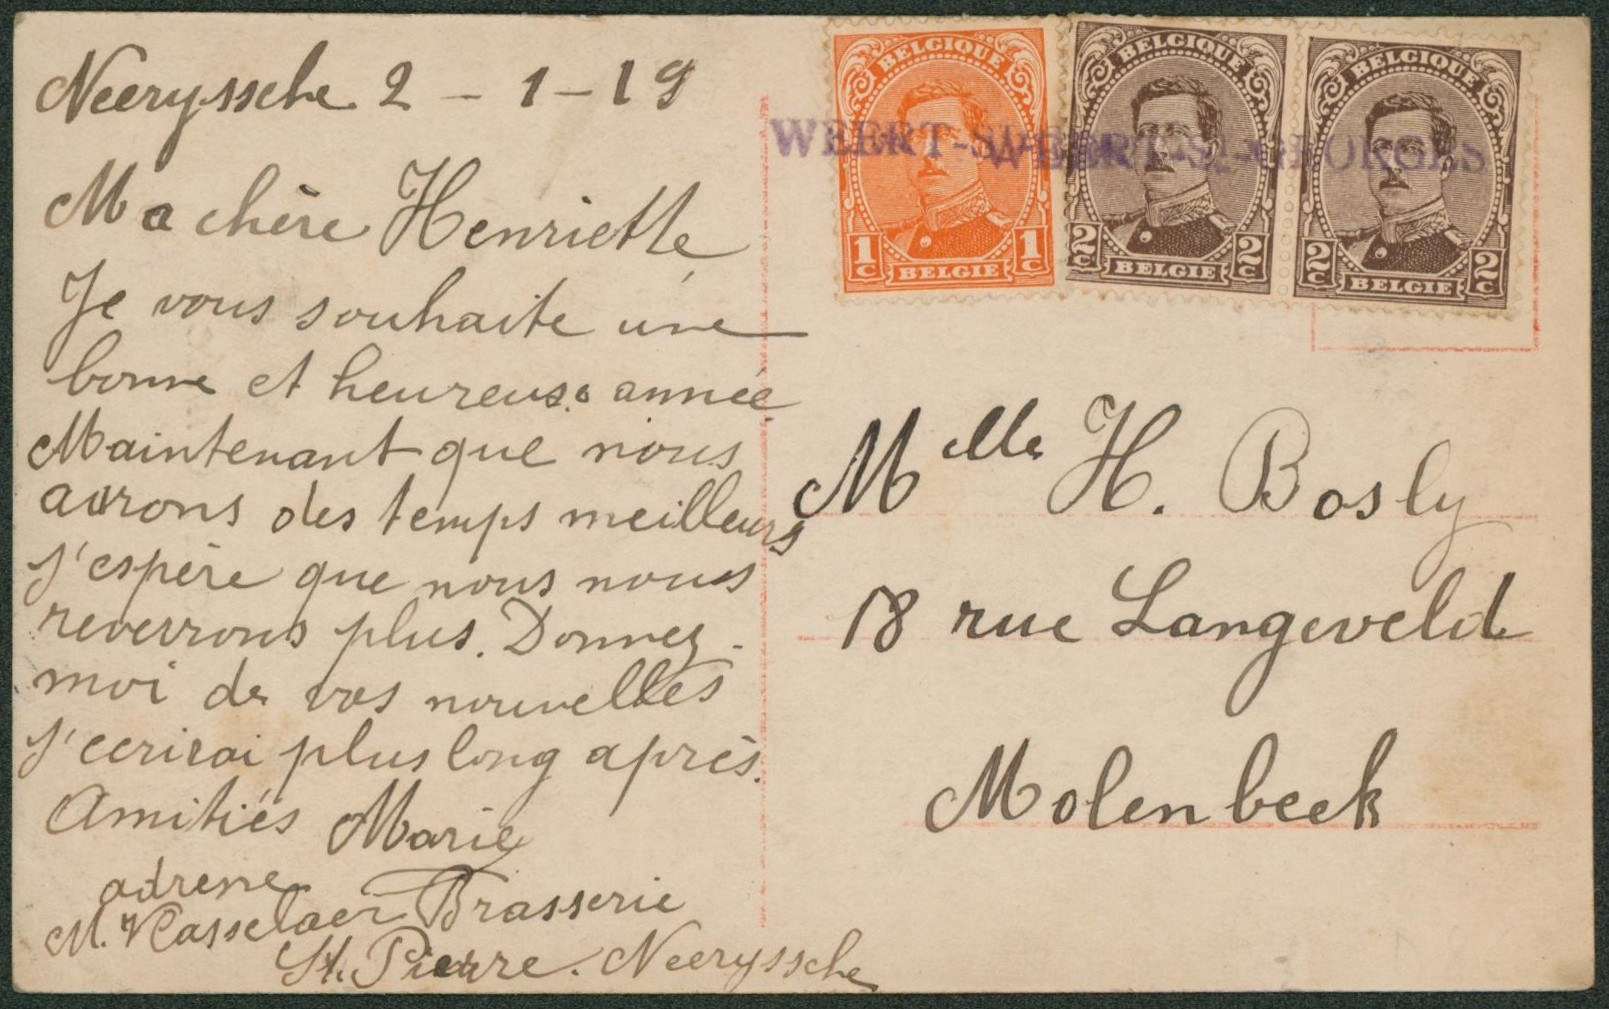 Neeryssche 2 - 1 - 19
Ma chère Henriette
Je vous souhaite une
bonne et heureuse année
Maintenant que nous
aurons des temps meilleurs
j'espère que nous nous
reverrons plus. Donnez-
moi de vos nouvelles
j'ecrirai plus long après.
Amitiés Marie
adresse
M. VCasselaer Brasserie
St. Pierre. Neeryssche
BELGIQUE
1c 1c
BELGIE
BELGIQUE
2c 2c
BELGIE
BELGIQUE
2c 2c
BELGIE
WEERT-S
WEERT-St-GEORGES
Melle H. Bosly
18 rue Langeveld
Molenbeek